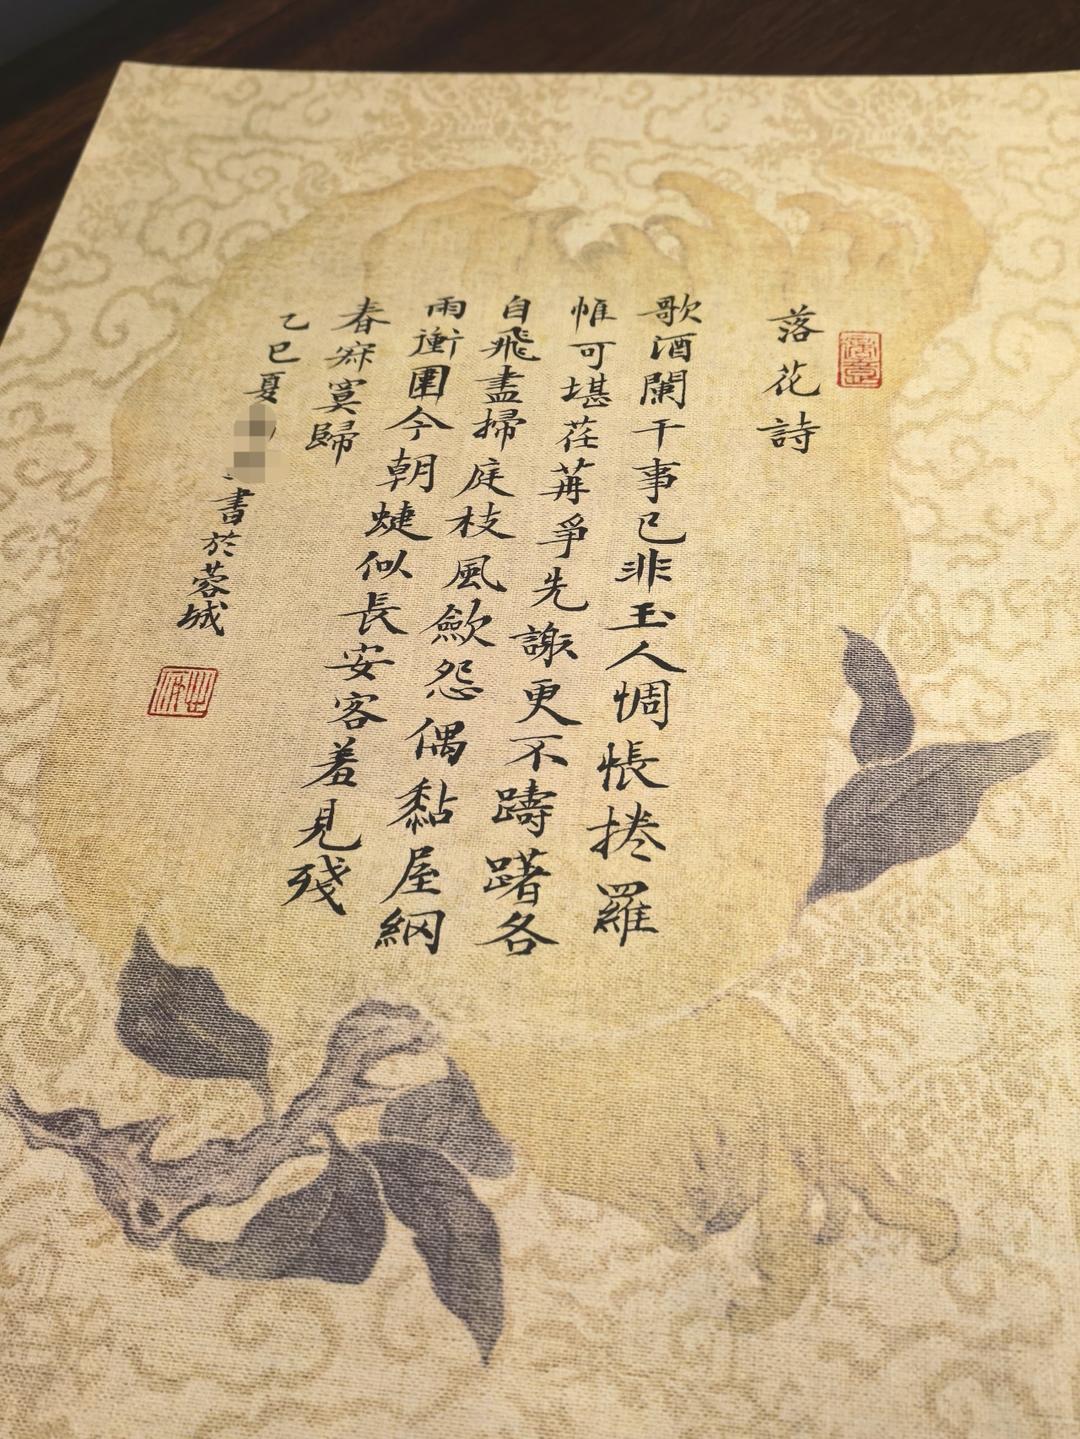 落花詩
歌酒闌干事已非玉人惆悵捲羅
帷可堪荏苒爭先謝更不躊躇各
自飛盡掃庭枝風歛怨偶黏屋網
雨衝圍今朝蜨似長安客羞見殘
春寂寞歸
乙巳夏
書於蓉城